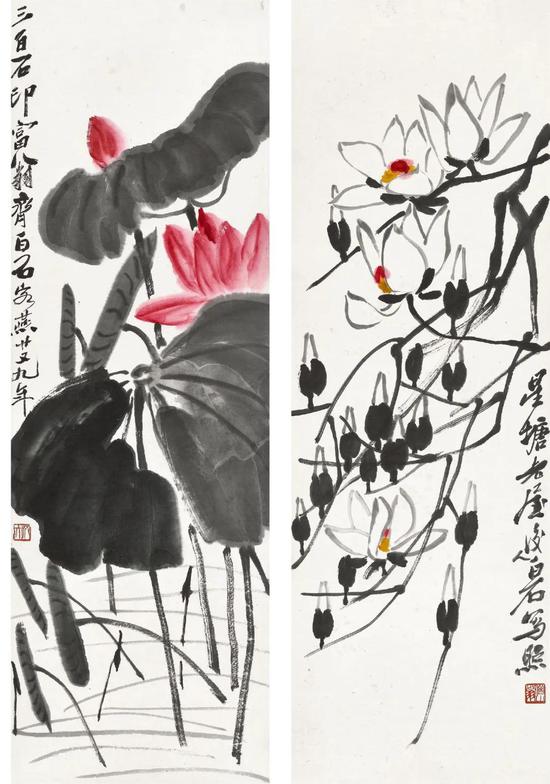 三百石印富翁齊白石客燕廿又九年
星塘老屋後人白石寫照